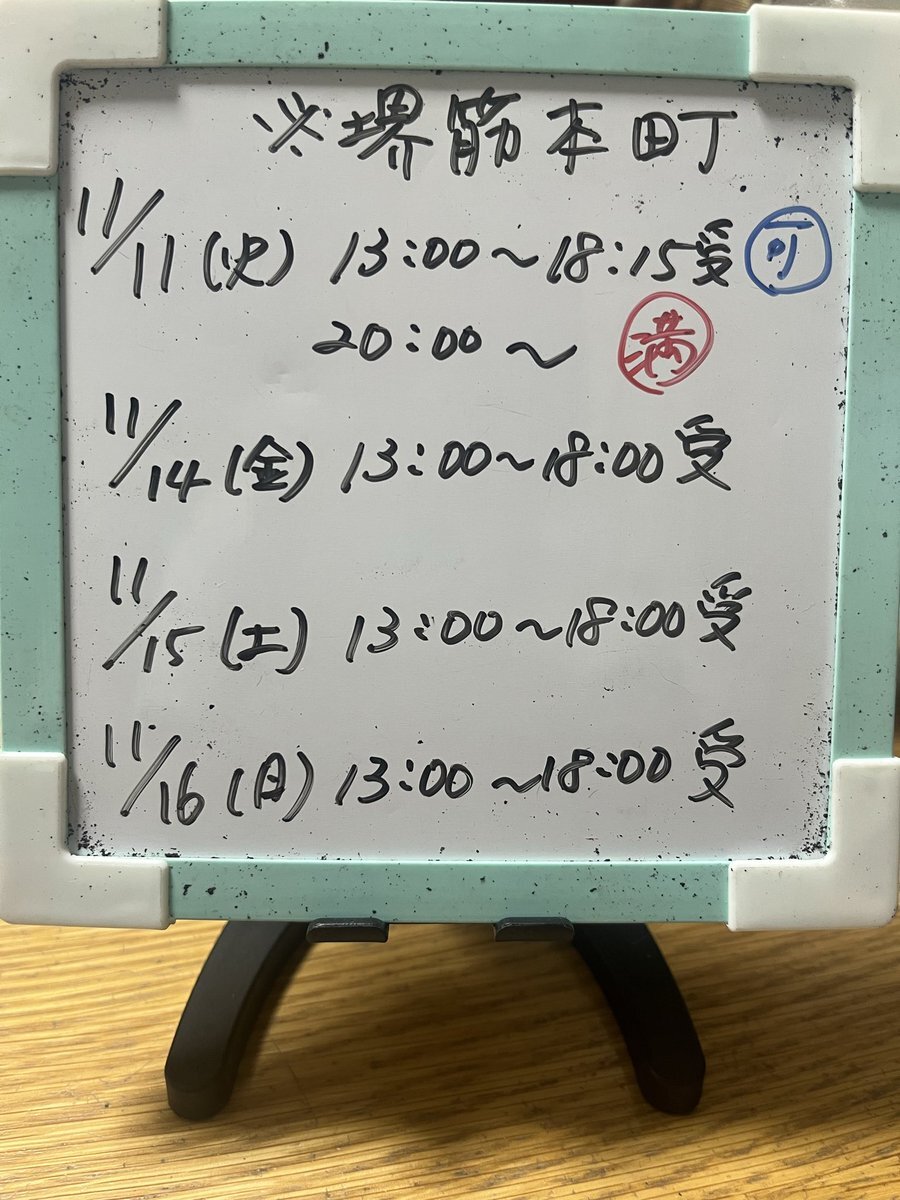 ※堺筋本町
11/11(火) 13:00～18:15受 可
20:00～ 満
11/14(金) 13:00～18:00受
11/15(土) 13:00～18:00受
11/16(日) 13:00～18:00受